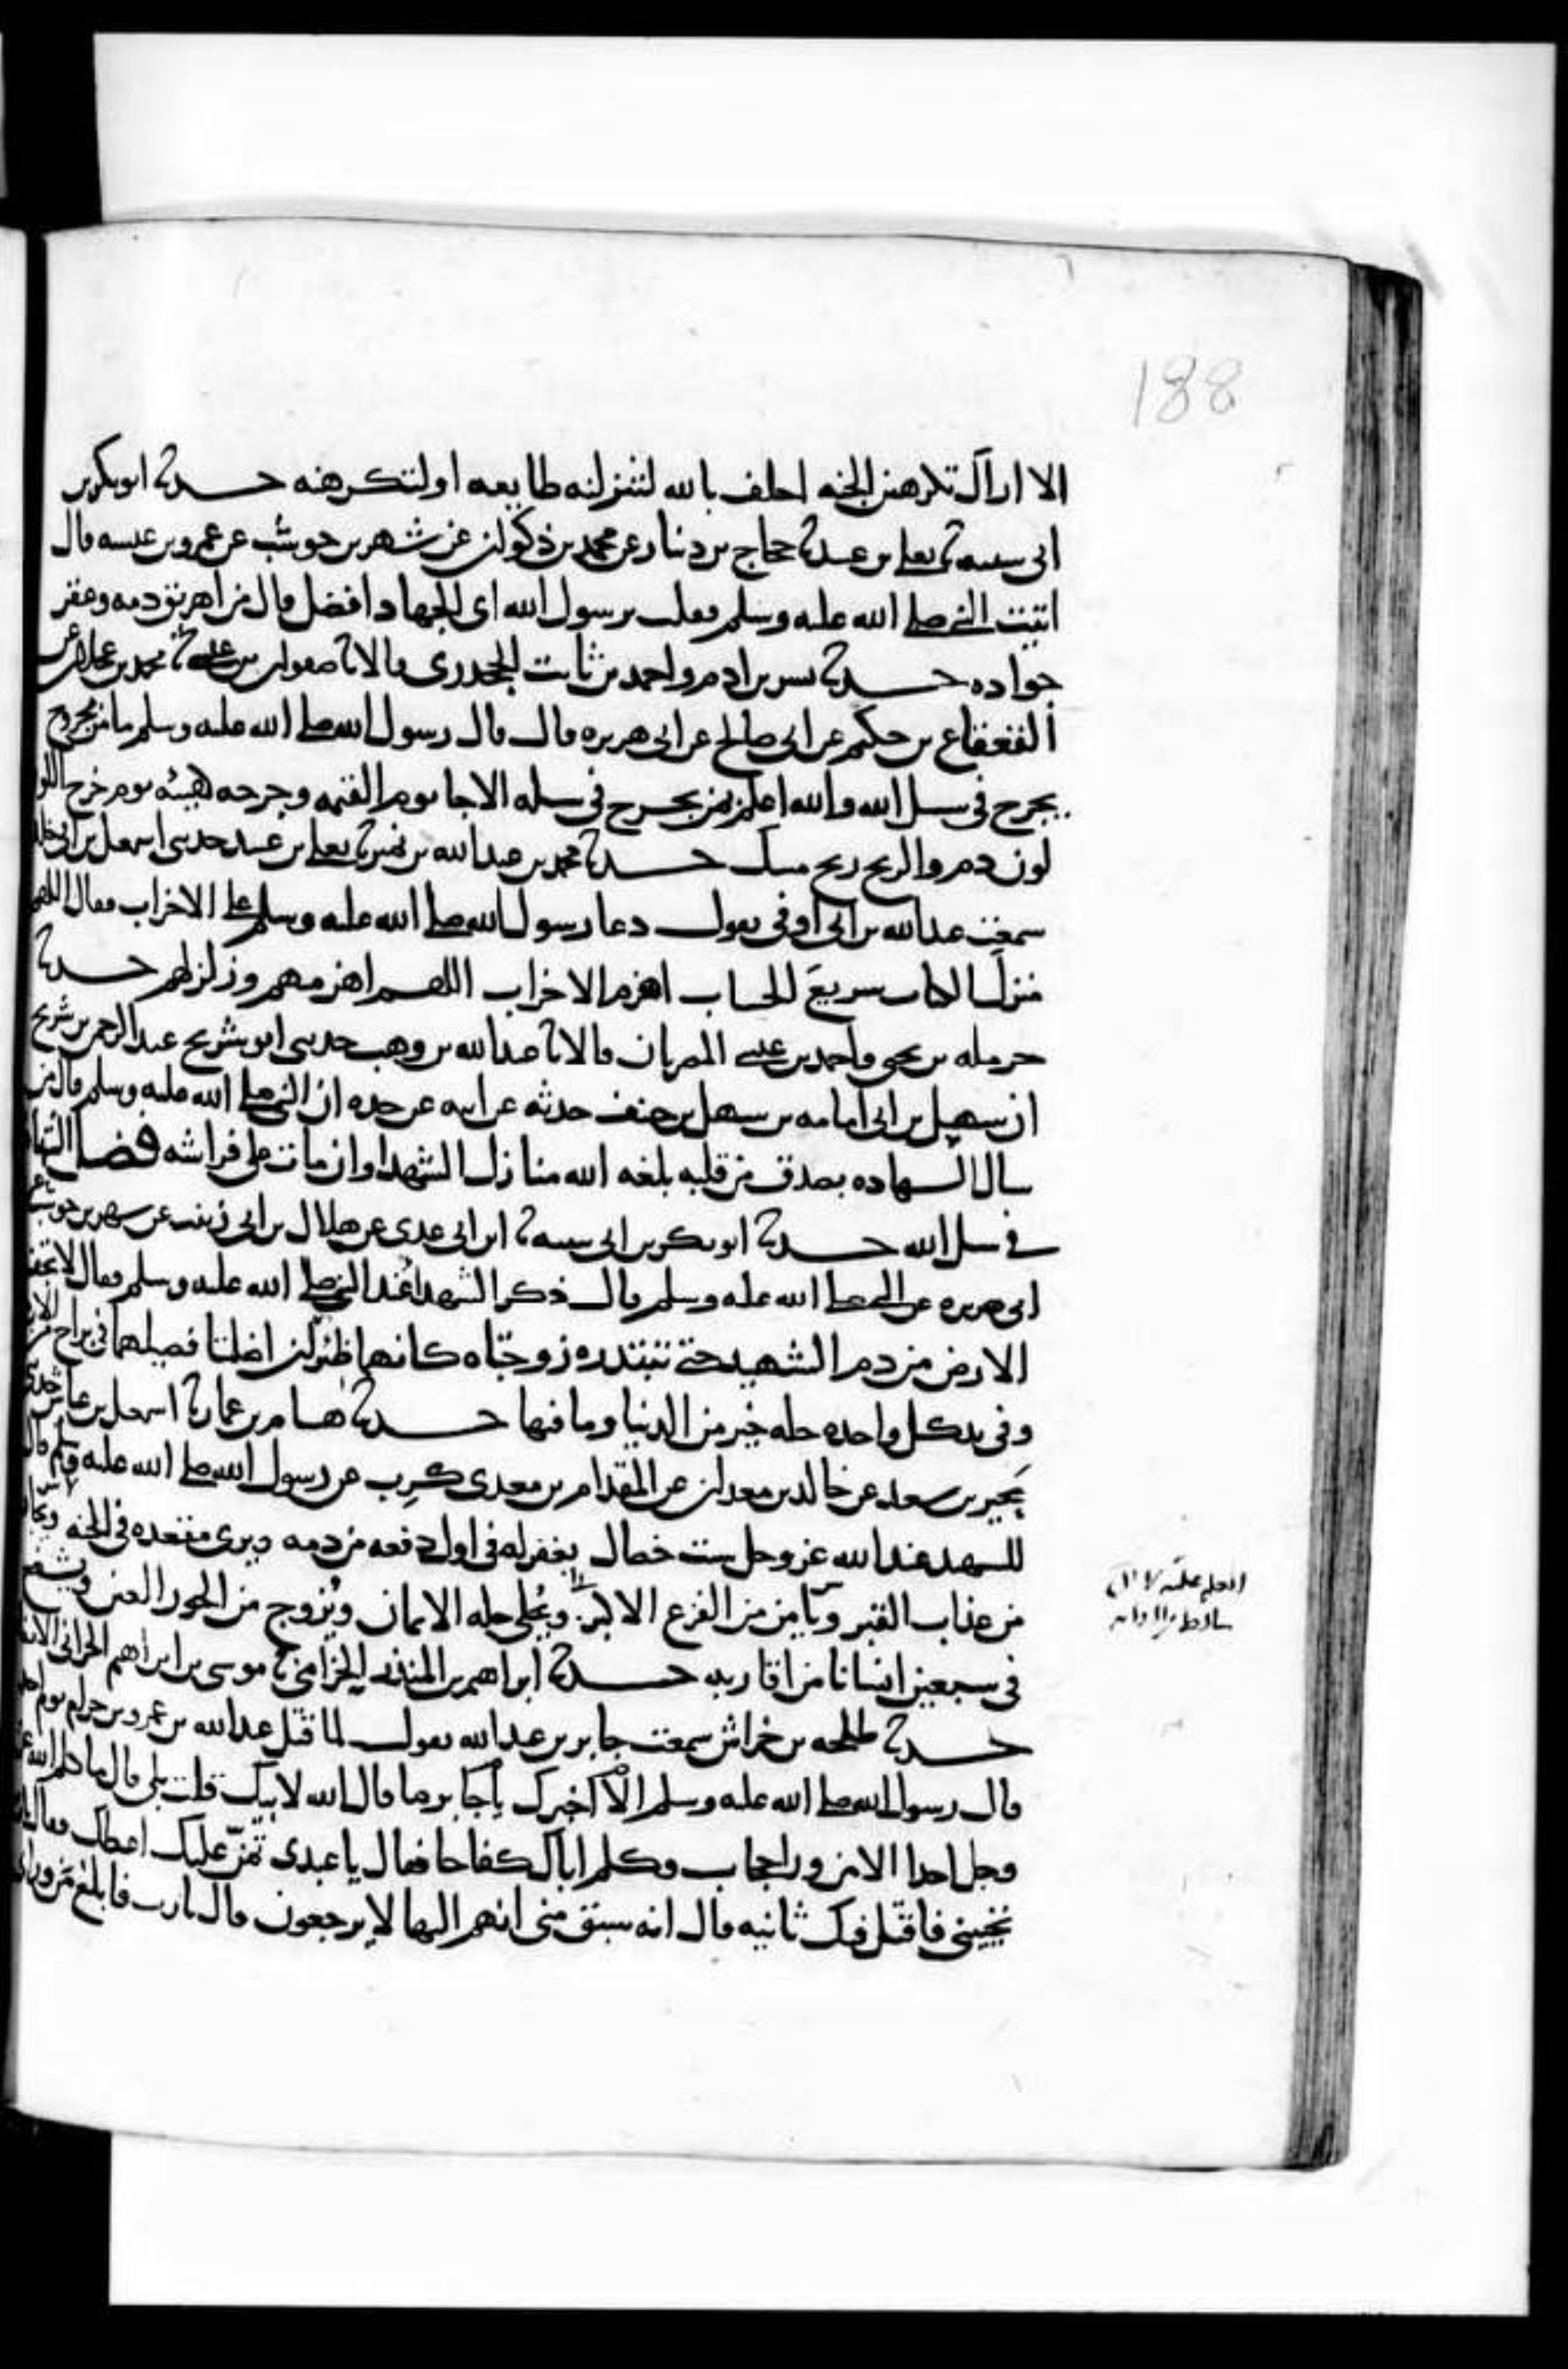 188
الا اراك تكرهين الجنه احلف بالله لتنزلنه طايعه او لتكرهنه حدثنا ابو بكر بن
ابى شيبه ثنا يعلى بن عبيد ثنا حجاج بن دينار عن محمد بن ذكوان عن شهر بن حوشب عن عمرو بن عبسه قال
اتيت النبى صلى الله عليه وسلم فقلت يرسول الله اى الجهاد افضل قال من اهريق دمه وعقر
جواده حدثنا بشر بن ادم واحمد بن ثابت الجحدرى قالا ثنا صفوان بن عيسى ثنا محمد بن عجلان عن
القعقاع بن حكيم عن ابى صالح عن ابى هريره قال قال رسول الله صلى الله عليه وسلم ما من مجروح
يجرح فى سبيل الله والله اعلم بمن يجرح فى سبيله الا جا يوم القيمه وجرحه كهيئه يوم جرح اللون
لون دم والريح ريح مسك حدثنا محمد بن عبد الله بن نمير ثنا يعلى بن عبيد حدثنى اسمعيل بن ابى خالد
سمعت عبد الله بن ابى اوفى يقول دعا رسول الله صلى الله عليه وسلم على الاحزاب فقال اللهم
منزل الكتاب سريع الحساب اهزم الاحزاب اللهم اهزمهم وزلزلهم حدثنا
حرمله بن يحيى واحمد بن عيسى المصريان قالا ثنا عبد الله بن وهب حدثنى ابو شريح عبد الرحمن بن شريح
ان سهل بن ابى امامه بن سهل بن حنيف حدثه عن ابيه عن جده ان النبى صلى الله عليه وسلم قال من
سال الله الشهاده بصدق من قلبه بلغه الله منازل الشهدا وان مات على فراشه فضل الشهاده
فى سبيل الله حدثنا ابو بكر بن ابى شيبه ثنا ابن ابى عدى عن هلال بن ابى زينب عن شهر بن حوشب عن
ابى هريره عن النبى صلى الله عليه وسلم قال ذكر الشهدا عند النبى صلى الله عليه وسلم فقال لا تجف
الارض من دم الشهيد حتى تبتدره زوجتاه كانهما ظئران اضلتا فصيلهما فى براح من الارض
وفى يد كل واحده حله خير من الدنيا وما فيها حدثنا هشام بن عمار ثنا اسمعيل بن عياش حدثنى
بحير بن سعد عن خالد بن معدان عن المقدام بن معدى كرب عن رسول الله صلى الله عليه وسلم قال
للشهيد عند الله عز وجل ست خصال يغفر له فى اول دفعه من دمه ويرى مقعده فى الجنه ويجار
من عذاب القبر ويامن من الفزع الاكبر ويحلى حله الايمان ويزوج من الحور العين ويشفع
فى سبعين انسانا من اقاربه حدثنا ابراهيم بن المنذر الحزامى ثنا موسى بن ابراهيم الحرانى الانصارى
حدثنا طلحه بن خراش سمعت جابر بن عبد الله يقول لما قتل عبد الله بن عمرو بن حرام يوم احد
قال رسول الله صلى الله عليه وسلم الا اخبرك يا جابر ما قال الله لابيك قلت بلى قال ما كلم الله عز
وجل احدا الا من ورا حجاب وكلم اباك كفاحا فقال يا عبدى تمن على اعطك فقال يارب
تحيينى فاقتل فيك ثانيه قال انه سبق منى انهم اليها لا يرجعون قال يارب فابلغ من وراى